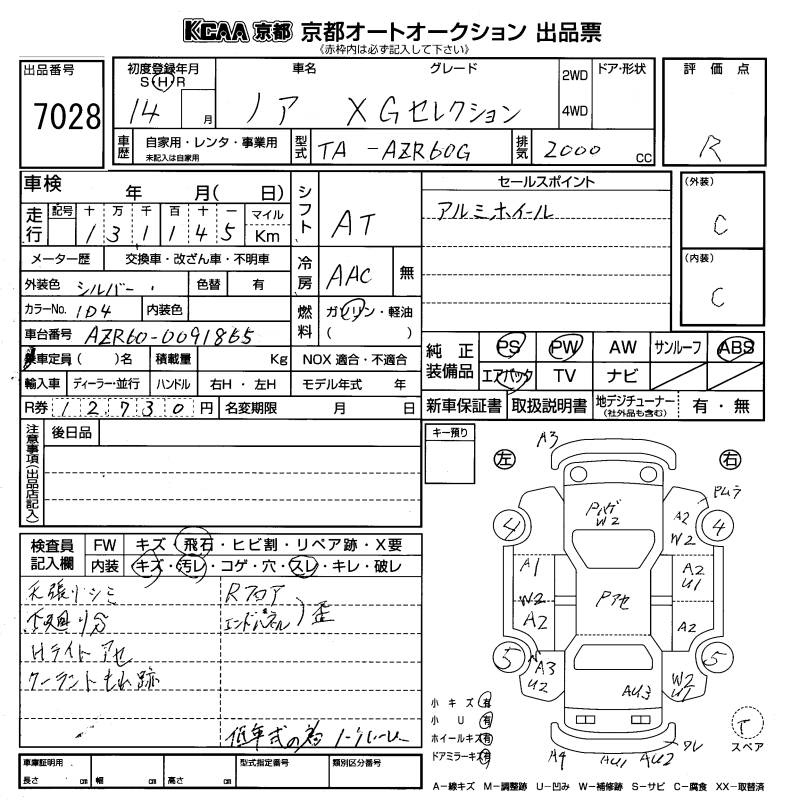 KCAA 京都 京都オートオークション 出品票
《赤枠内は必ず記入して下さい》
出品番号
7028
初度登録年月
S・H・R
14 月
車名
ノア
グレード
X Gセレクション
2WD
4WD
ドア・形状
評価点
R
車歴
自家用・レンタ・事業用
未記入は自家用
型式
TA-AZR60G
排気
2000 cc
車検 年 月( 日)
走行
記号 十 万 千 百 十 一 マイル
1 3 1 1 4 5 Km
メーター歴 交換車・改ざん車・不明車
外装色 シルバー 色替 有
カラーNo. 1D4 内装色
車台番号 AZR60-0091865
乗車定員( )名 積載量 Kg
輸入車 ディーラー・並行 ハンドル 右H・左H
R券 12730円 名変期限 月 日
シフト AT
冷房 AAC 無
燃料 ガソリン・軽油
( )
NOX 適合・不適合
モデル年式 年
セールスポイント
アルミホイール
(外装)
C
(内装)
C
純正装備品
PS PW AW サンルーフ ABS
エアバック TV ナビ
新車保証書 取扱説明書 地デジチューナー (社外品も含む) 有・無
注意事項(出品店記入)
後日品
検査員記入欄
FW キズ・飛石・ヒビ割・リペア跡・X要
内装 キズ・汚レ・コゲ・穴・スレ・キレ・破レ
天張りシミ
下廻り
Hライトアセ
クーラントモレ跡
Rフロア
エンドパネル
歪
低年式の為 ノークレーム
車庫証明用
長さ cm 幅 cm 高さ cm
型式指定番号
類別区分番号
キー預り
左
右
A3
Pハゲ
W2
Pムラ
4
4
A2
W2
A1
A2
U1
W2
A2
Pアセ
A2
5
5
A3
U2
W2
U1
AU3
A4
AU1
AU2
ワレ
小キズ 有
小U 有
ホイールキズ 有
ドアミラーキズ 有
T
スペア
A−線キズ M−調整跡 U−凹み W−補修跡 S−サビ C−腐食 XX−取替済